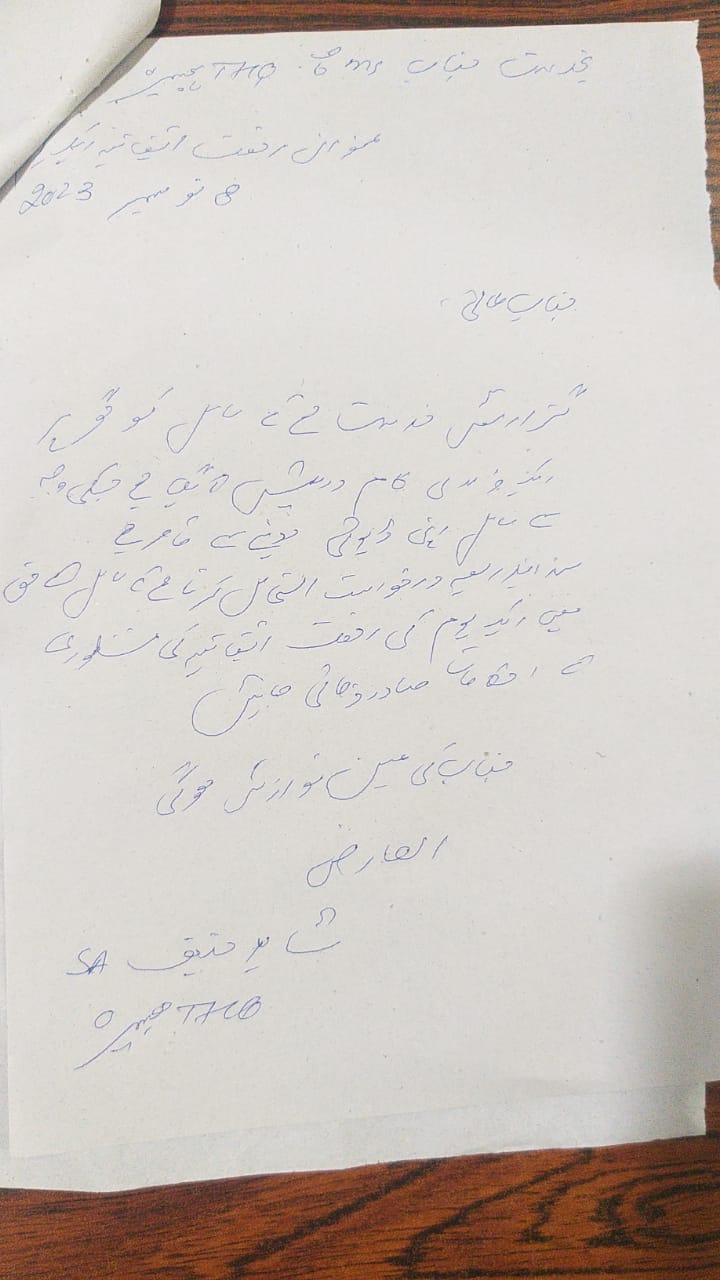 بخدمت جناب MS صاحب THQ ہجیرہ
عنوان رخصت اتفاقیہ ایک یوم
8 نومبر 2023
جناب عالی،
گزارش خدمت ہے کہ سائل کو گھر پر
ایک ضروری کام درپیش آ گیا ہے جسکی وجہ
سے سائل اپنی ڈیوٹی دینے سے قاصر ہے
بذریعہ درخواست التماس کرتا ہے کہ سائل کے حق
میں ایک یوم کی رخصت اتفاقیہ کی منظوری
کے احکامات صادر فرمائی جائیں
جناب کی عین نوازش ہوگی
العارض
شاہد عتیق SA
THQ ہجیرہ